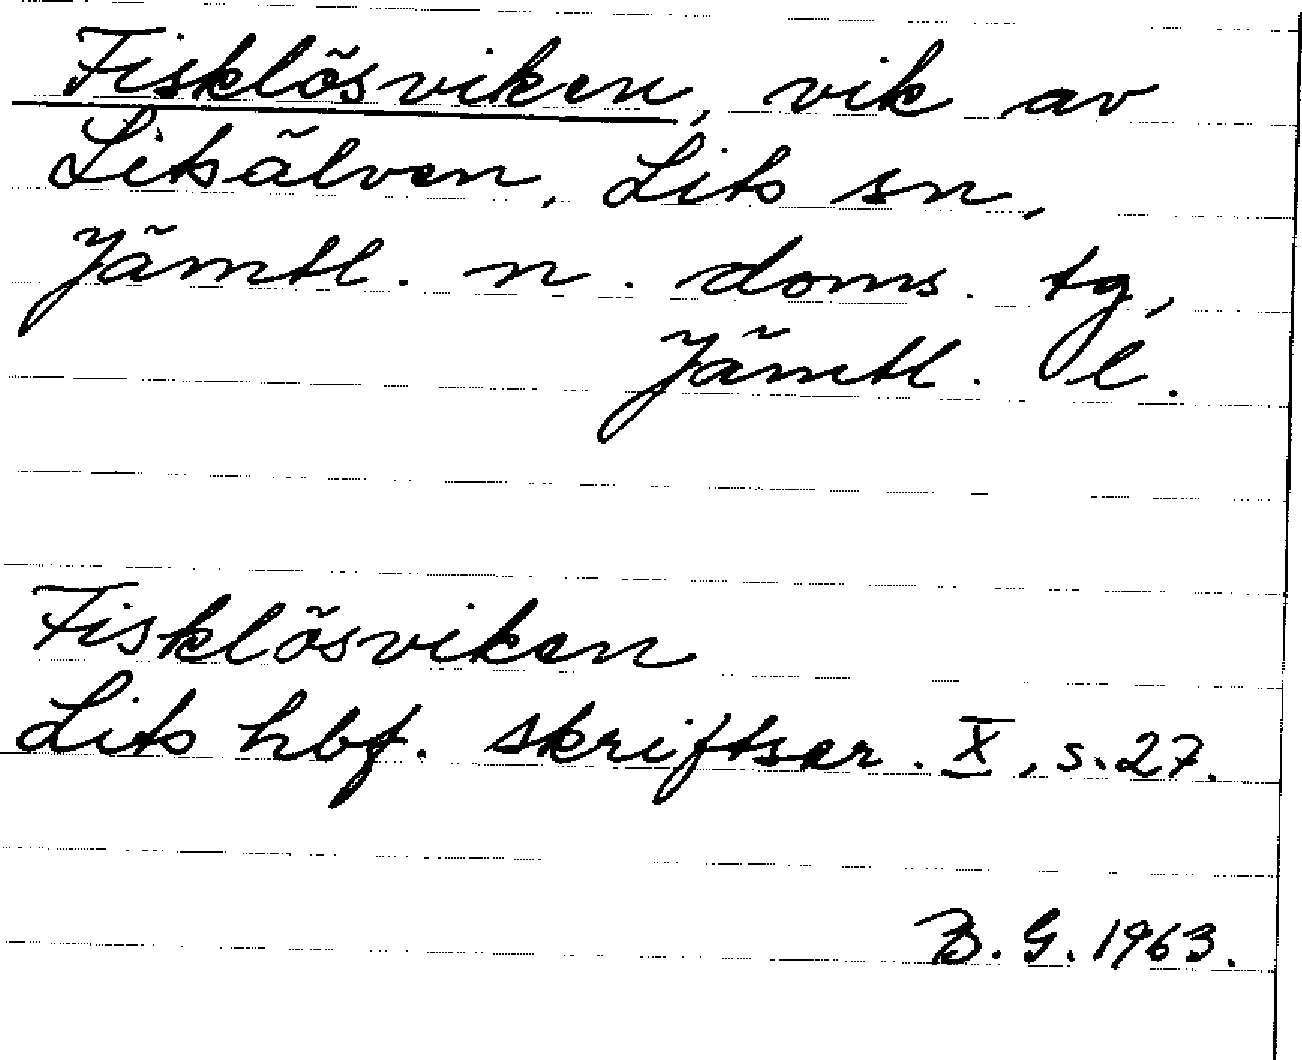 Fisklösviken, vik av
Litsälven, Lits sn,
Jämtl. n. doms. tg,
Jämtl. l.
Fisklösviken
Lits hbf. skriftser. X, s.27.
B.G.1963.